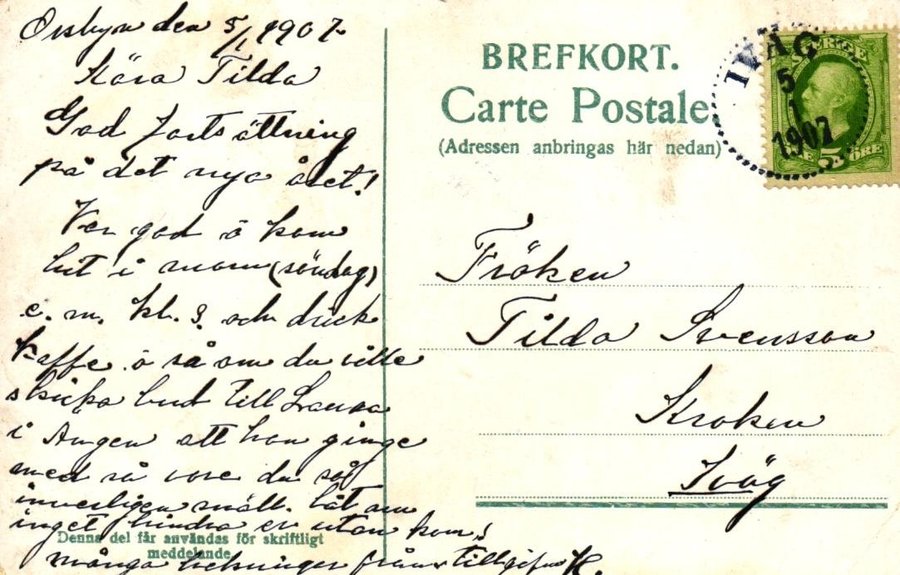 den 5/1 1907.
Kära Tilda
God fortsättning
på det nya året!
Var god o kom
hit i morn (söndag)
e. m. kl. 3. och drick
kaffe. o så om du ville
skicka bud till
i Ängen att hon ginge
med så vore du så
låt nu
inget hindra er utan kom!
många helsningar från tillgifna H.
Denna del får användas för skriftligt
meddelande.
BREFKORT.
Carte Postale.
(Adressen anbringas här nedan)
SVERIGE
5 ÖRE
IVÄG
5
1
1907
Fröken
Tilda Svensson
Kroken
Iväg